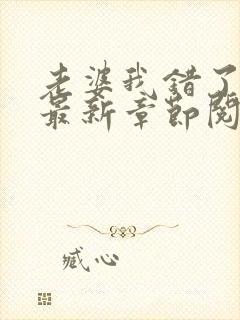 老婆我错了
最新章节阅
臧心